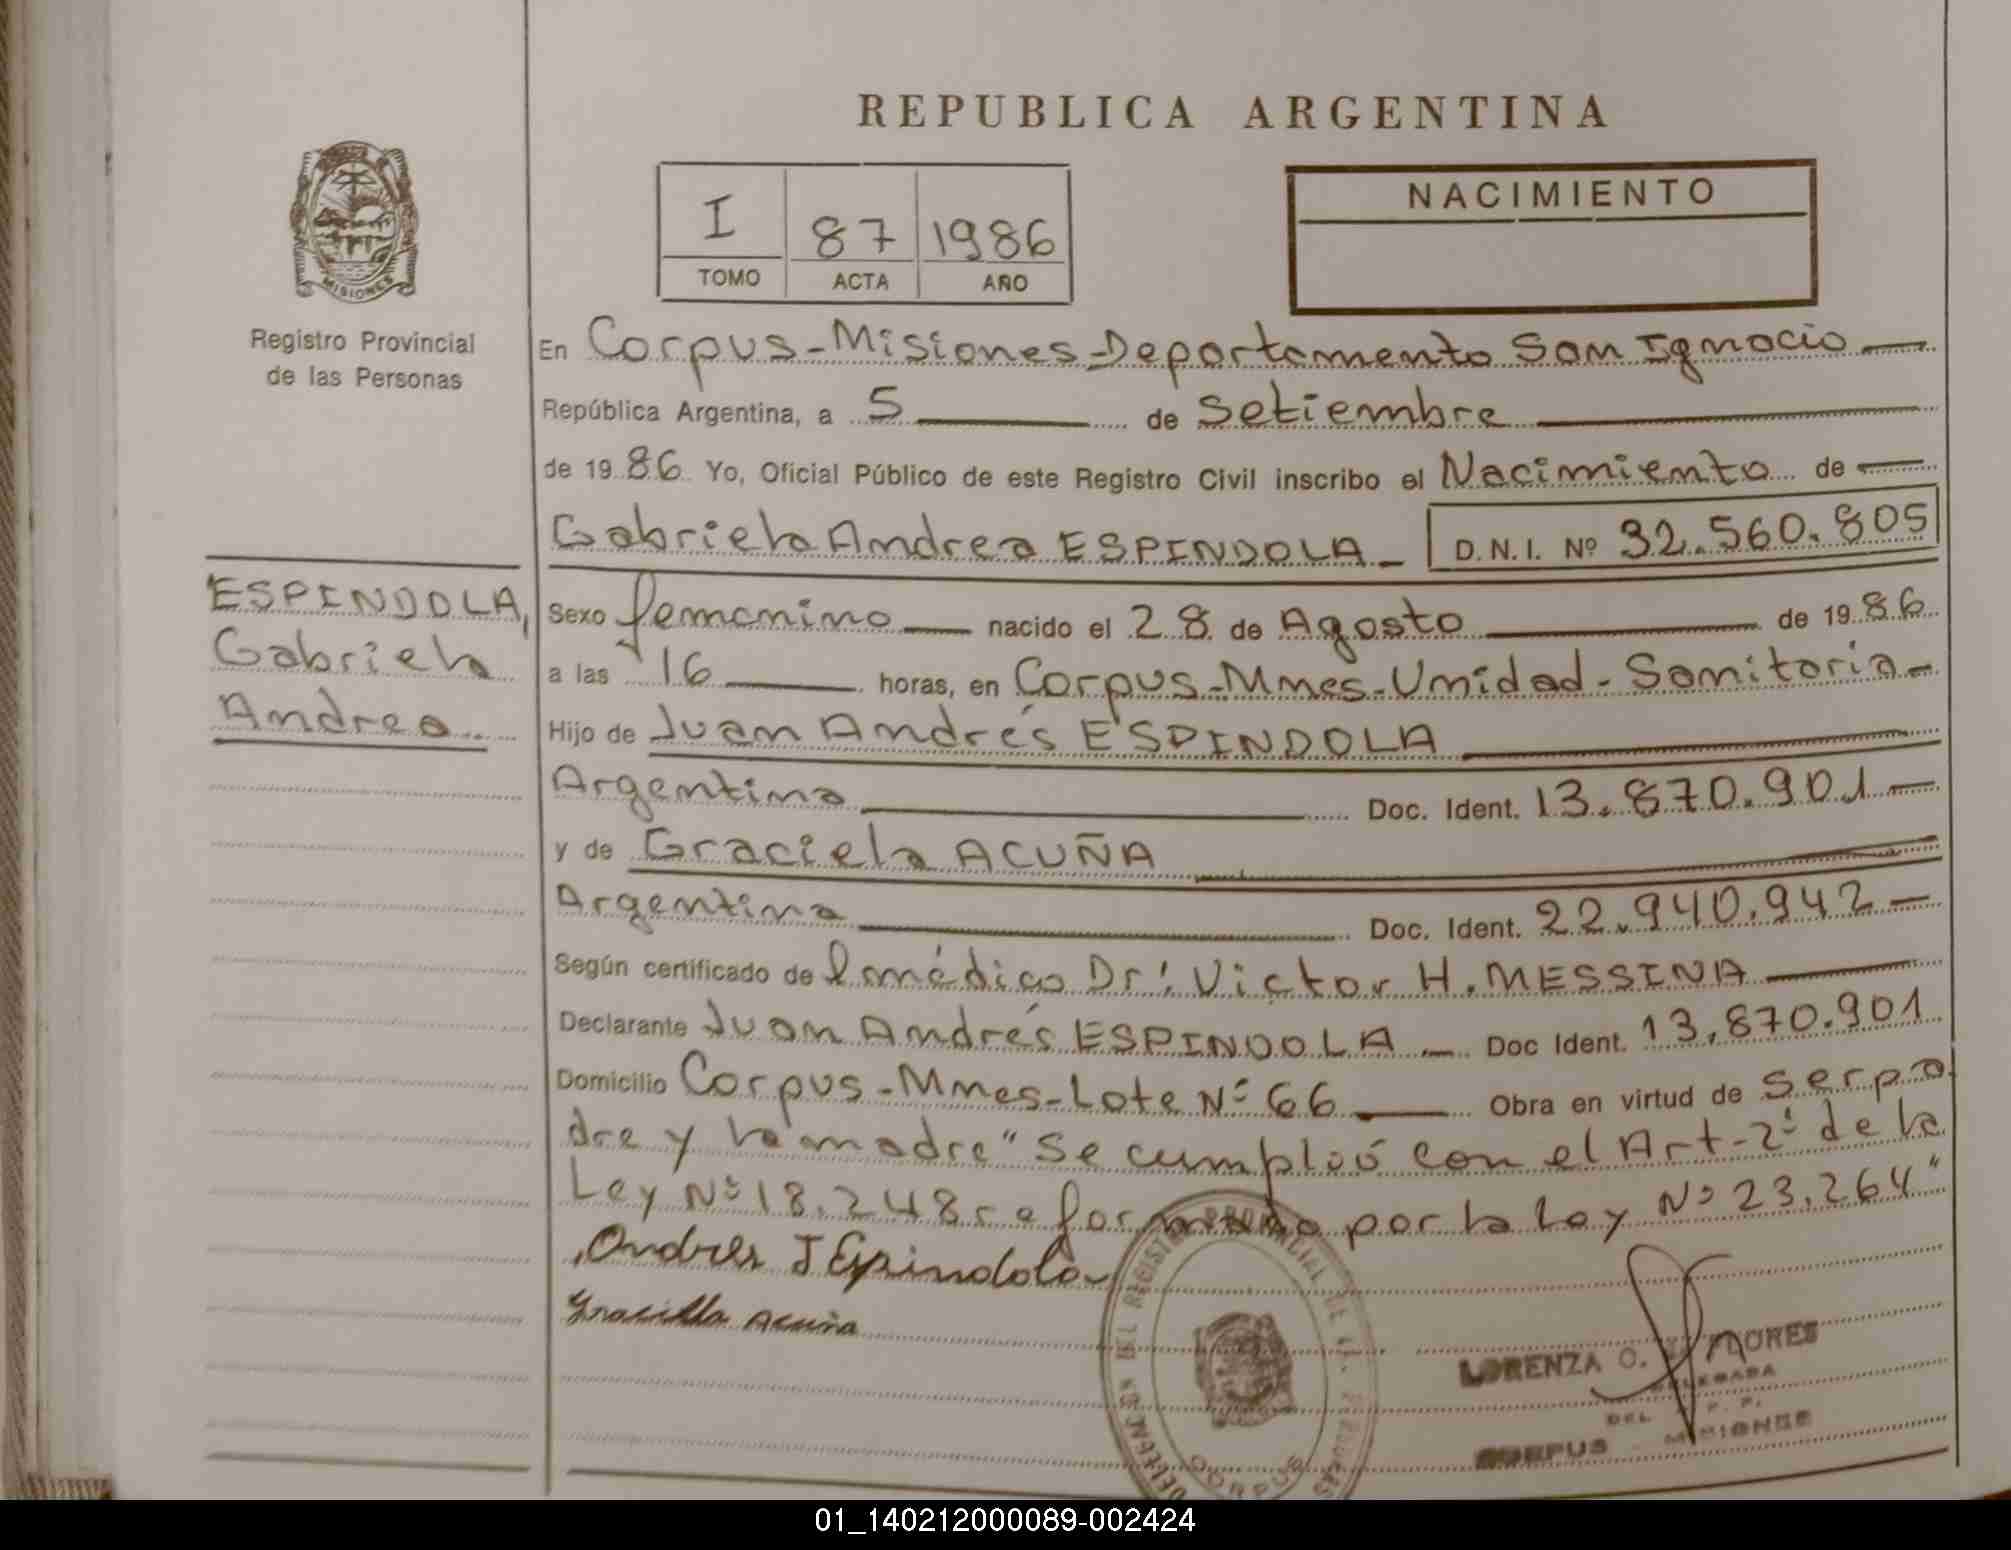 REPUBLICA ARGENTINA
MISIONES
Registro Provincial
de las Personas
I 87 1986
TOMO ACTA AÑO
NACIMIENTO
En Corpus-Misiones-Departamento San Ignacio
República Argentina, a 5 de Setiembre
de 1986 Yo, Oficial Público de este Registro Civil inscribo el Nacimiento de
Gabriela Andrea ESPINDOLA D.N.I. Nº 32.560.805
ESPINDOLA,
Gabriela
Andrea
Sexo femenino nacido el 28 de Agosto de 1986
a las 16 horas, en Corpus-Mnes-Unidad-Sanitaria-
Hijo de Juan Andrés ESPINDOLA
Argentina Doc. Ident. 13.870.901
y de Graciela ACUÑA
Argentina Doc. Ident. 22.940.942
Según certificado de l médico Dr: Victor H. MESSINA
Declarante Juan Andrés ESPINDOLA Doc Ident. 13.870.901
Domicilio Corpus-Mnes-Lote Nº 66 Obra en virtud de ser pa
dre y la madre "Se cumplió con el Art-2º de la
Ley Nº 18.248 reformado por la Ley Nº 23.264"
Andres J Espindola
Graciella Acuña
LORENZA O.
DELEGADA
DEL R. P. P.
CORPUS - MISIONES
CORPUS
01_140212000089-002424